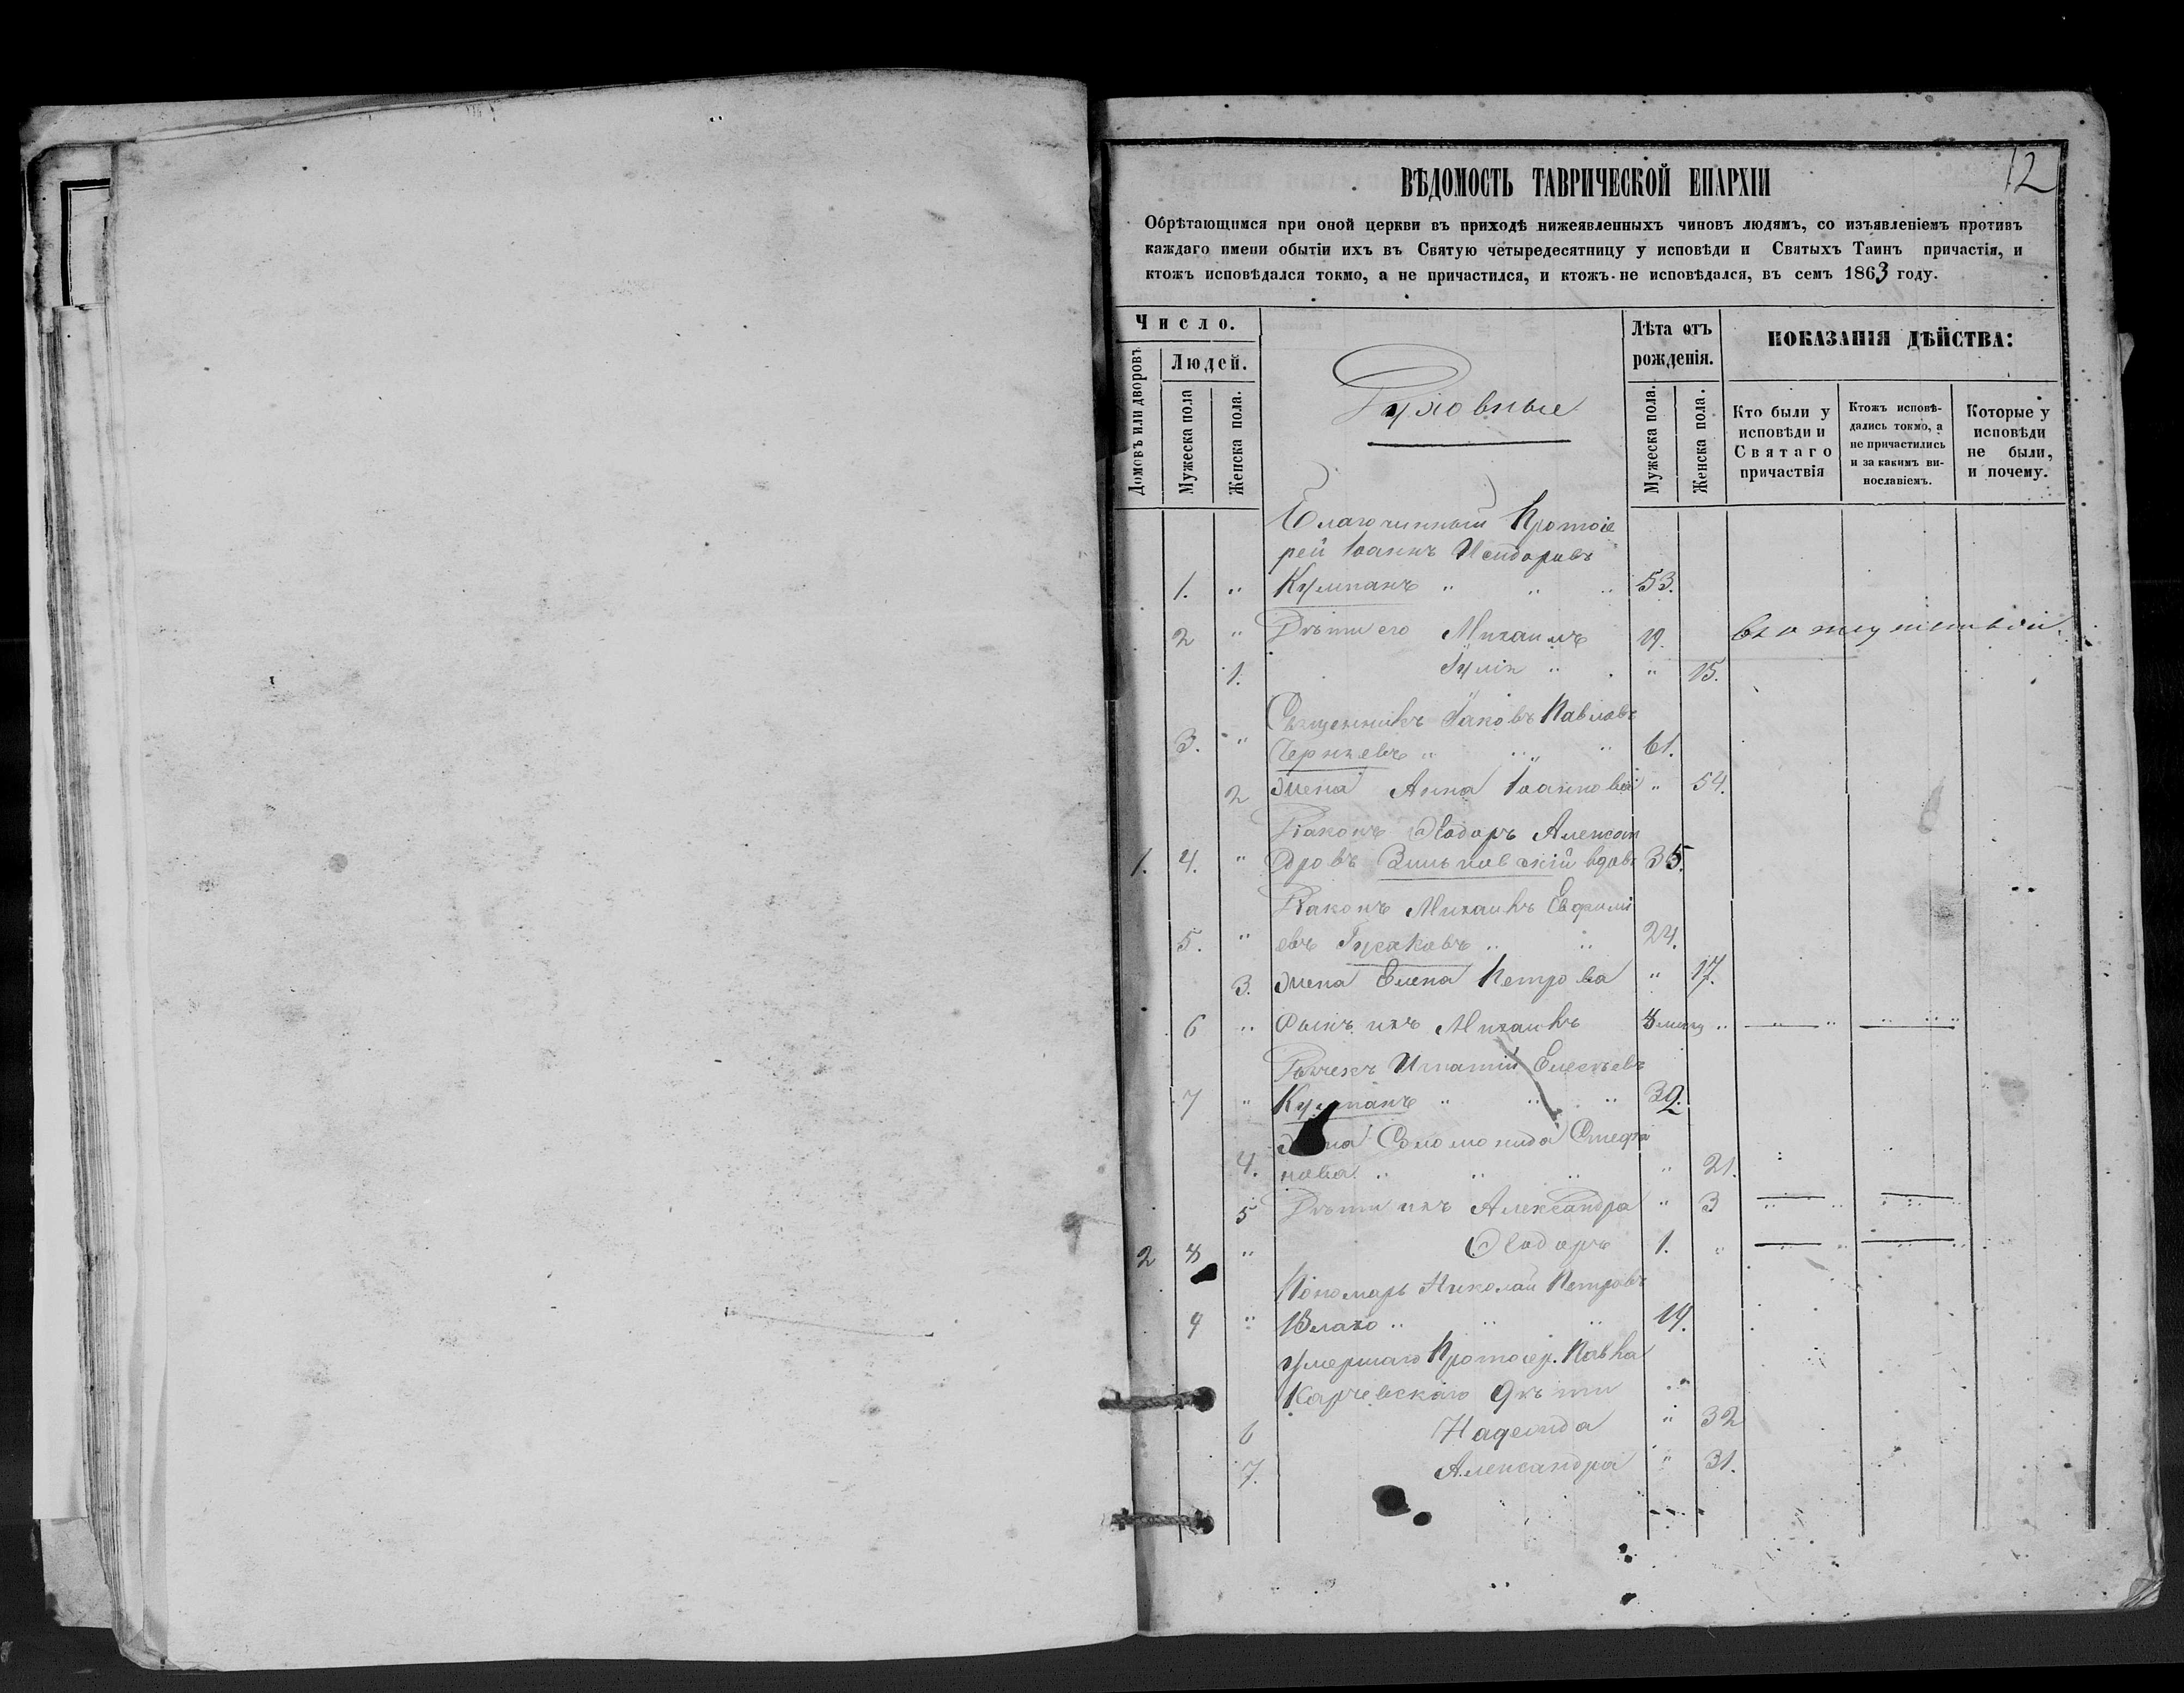 12
ВѢДОМОСТЬ ТАВРИЧЕСКОЙ ЕПАРХІИ
Обрѣтающимся при оной церкви въ приходѣ нижеявленныхъ чиновъ людямъ, со изъявленіемъ противъ
каждаго имени обытіи ихъ въ Святую четыредесятницу у исповѣди и Святыхъ Таинъ причастія, и
ктожъ исповѣдался токмо, а не причастился, и ктожъ не исповѣдался, въ семъ 1863 году.
Число.
Людей.
Домовъ или дворовъ
Мужеска пола
Женска пола.
Духовные
Лѣта отъ
рожденія.
Мужеска пола.
Женска пола.
ПОКАЗАНІЯ ДѢЙСТВА:
Кто были у
исповѣди и
Святаго
причаствія
Ктожъ исповѣ-
дались токмо, а
не причастились
и за какимъ ви-
нославіемъ.
Которые у
исповѣди
не были,
и почему.
Благочинный Протоіе
рей Іоаннъ Исидоровъ
1. " Кумпанъ " " " 53.
2 " Дѣти его Михаилъ 19. въ отсутствіи.
1. Юлія " " 15.
Священникъ Іаковъ Павловъ
3. " Чернявъ " " " 61.
2 Жена Анна Іоаннова " 54.
Діаконъ Ѳеодоръ Алексан
1. 4. " дровъ вдовъ 35.
Діаконъ Михаилъ Евфимі
5. " евъ " " 24.
3. Жена Елена Петрова " 17.
6 " Сынъ ихъ Михаилъ 8 мѣсяц "
Дьячекъ Игнатій Елисѣевъ
7 " Кумпанъ " " " 32.
Жена Соломонида Стефа
4. нова " " " " 21.
5 Дѣти ихъ Александра " 3
2 8 " Ѳеодоръ 1. "
Пономарь Николай Петровъ
9 " Влахо " " " 19.
умершаго Протоіер. Павла
Карчевскаго дѣти
6 Надежда " 32
7. Александра " 31.